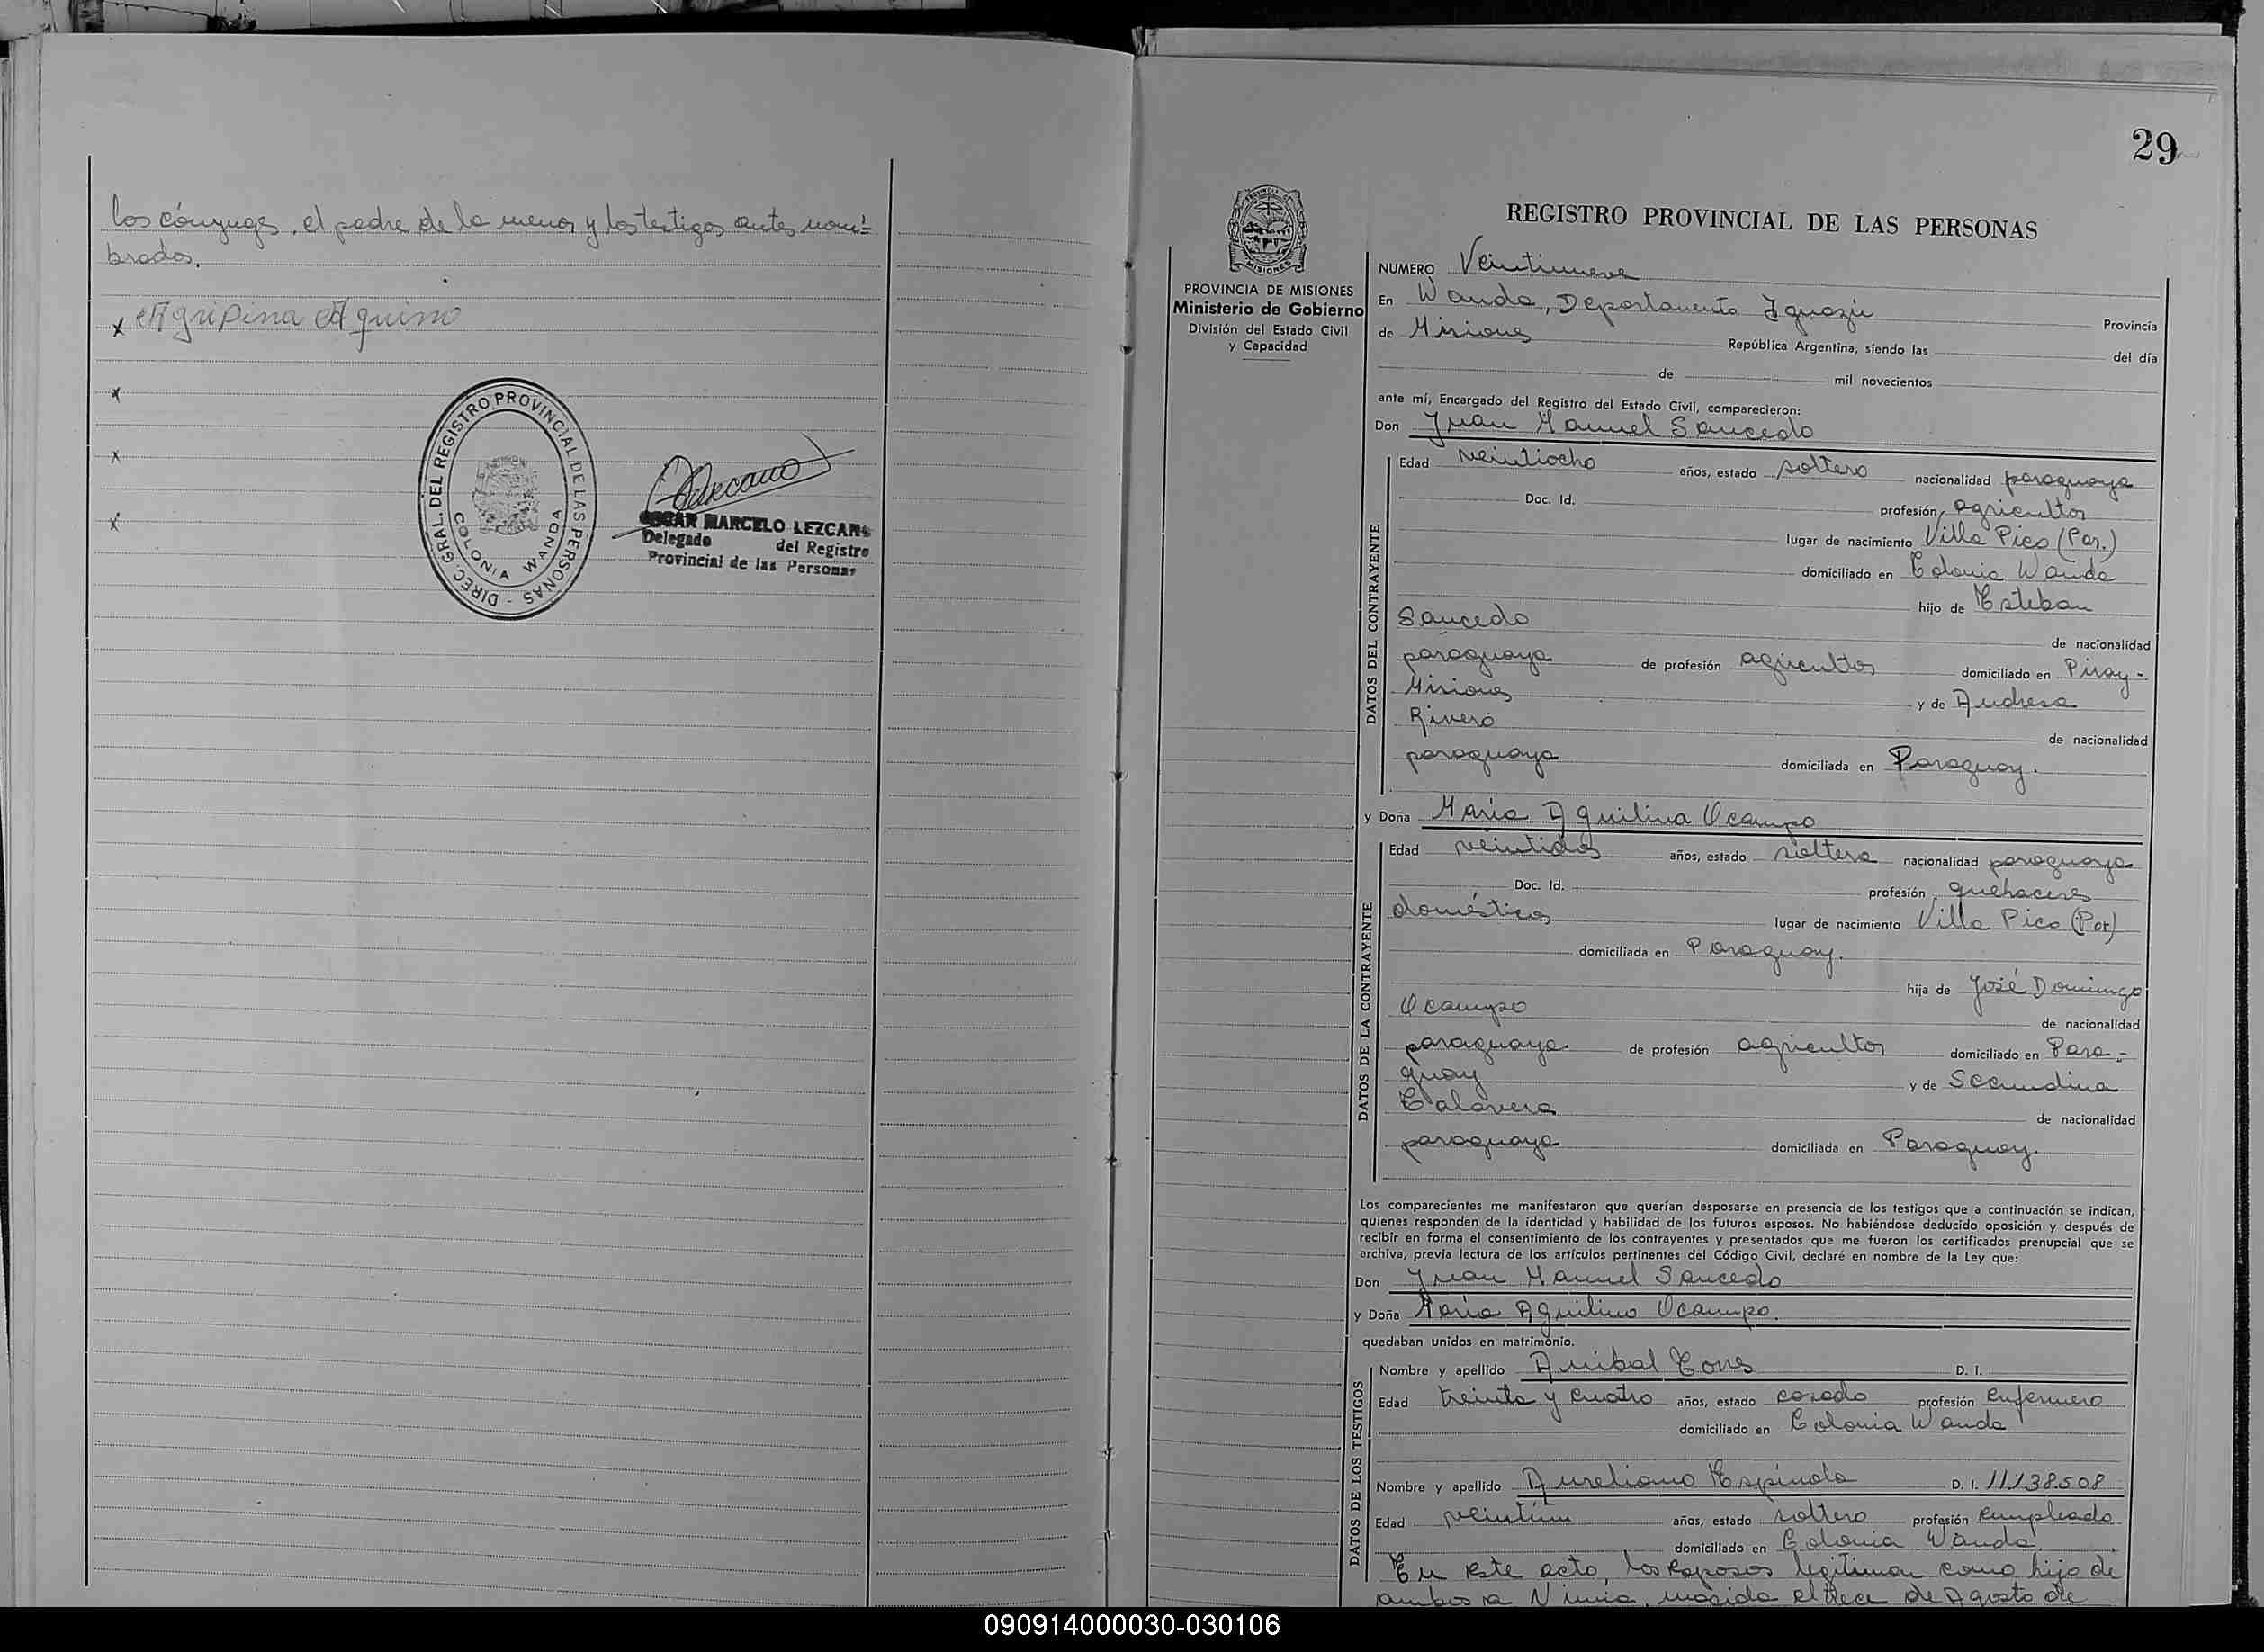 los cónyuges, el padre de la menor y los testigos antes nom-
brados.
x Agripina Aquino
x
x
x
DIREC. GRAL. DEL REGISTRO PROVINCIAL DE LAS PERSONAS -
COLONIA WANDA
OSCAR MARCELO LEZCANO
Delegado del Registro
Provincial de las Personas
29
PROVINCIA
MISIONES
PROVINCIA DE MISIONES
Ministerio de Gobierno
División del Estado Civil
y Capacidad
REGISTRO PROVINCIAL DE LAS PERSONAS
NUMERO Veintinueve
En Wanda, Departamento Iguazú Provincia
de Misiones República Argentina, siendo las del día
de mil novecientos
ante mí, Encargado del Registro del Estado Civil, comparecieron:
Don Juan Manuel Saucedo
DATOS DEL CONTRAYENTE
Edad veintiocho años, estado soltero nacionalidad paraguaya
Doc. Id. profesión agricultor
lugar de nacimiento Villa Pico (Par.)
domiciliado en Colonia Wanda
hijo de Esteban
Saucedo de nacionalidad
paraguaya de profesión agricultor domiciliado en Piray-
Misiones y de Andresa
Rivero de nacionalidad
paraguaya domiciliada en Paraguay.
y Doña Maria Aquilina Ocampo
DATOS DE LA CONTRAYENTE
Edad veintidos años, estado soltera nacionalidad paraguaya
Doc. Id. profesión quehaceres
domésticos lugar de nacimiento Villa Pico (Par)
domiciliada en Paraguay.
hija de José Domingo
Ocampo de nacionalidad
paraguaya. de profesión agricultor domiciliado en Para-
guay y de Secundina
Talavera de nacionalidad
paraguaya domiciliada en Paraguay.
Los comparecientes me manifestaron que querían desposarse en presencia de los testigos que a continuación se indican,
quienes responden de la identidad y habilidad de los futuros esposos. No habiéndose deducido oposición y después de
recibir en forma el consentimiento de los contrayentes y presentados que me fueron los certificados prenupcial que se
archiva, previa lectura de los artículos pertinentes del Código Civil, declaré en nombre de la Ley que:
Don Juan Manuel Saucedo
y Doña Maria Aquilina Ocampo.
quedaban unidos en matrimonio.
DATOS DE LOS TESTIGOS
Nombre y apellido Anibal D. I.
Edad treinta y cuatro años, estado casado profesión enfermero
domiciliado en Colonia Wanda
Nombre y apellido Aureliano Espínola D. I. 11138.508
Edad veintiún años, estado soltero profesión empleado
domiciliado en Colonia Wanda.
En este acto, los esposos legitiman como hijo de
ambos a Ninia, nacida el trece de Agosto de
090914000030-030106